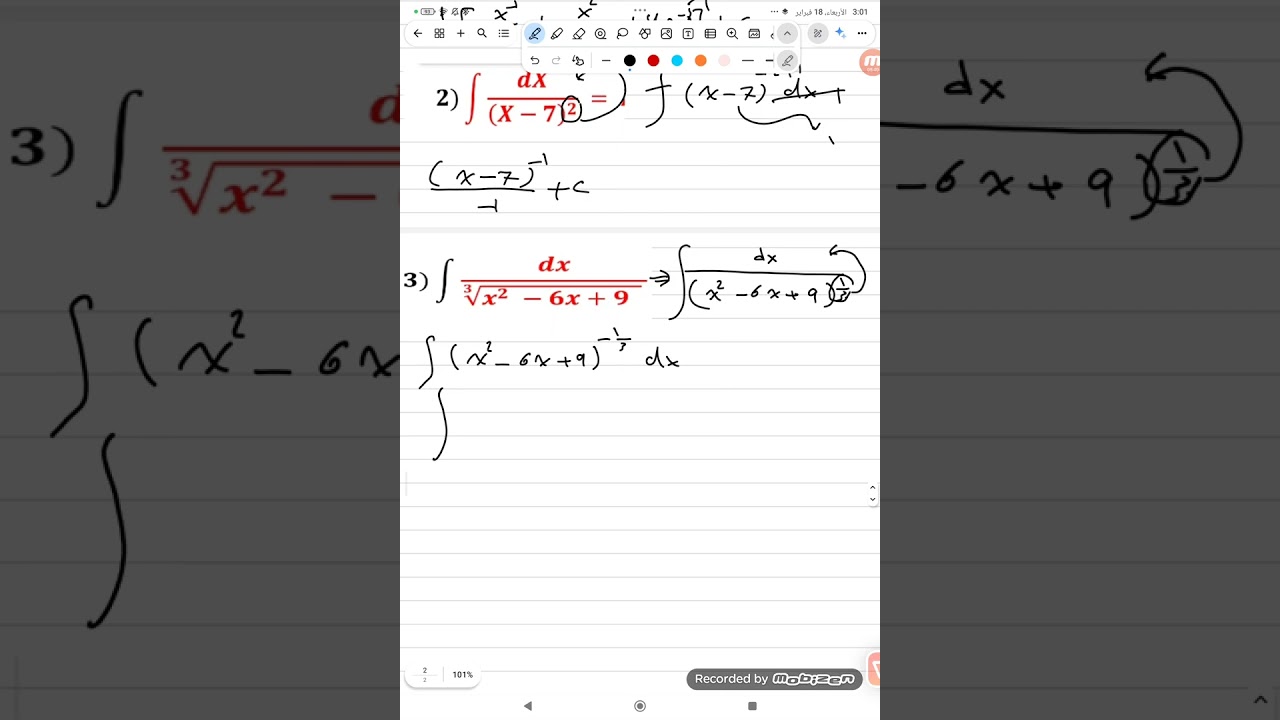 3:01 الأربعاء، 18 فبراير
2) ∫ dX / (X − 7)² = ∫ (x−7) dx
(x−7)⁻¹ / −1 + c
3) ∫ dx / ∛(x² − 6x + 9) ⇒ ∫ dx / (x² − 6x + 9)^(1/3)
∫ (x² − 6x + 9)^(−1/3) dx
∫
2/2 101%
Recorded by mobizen